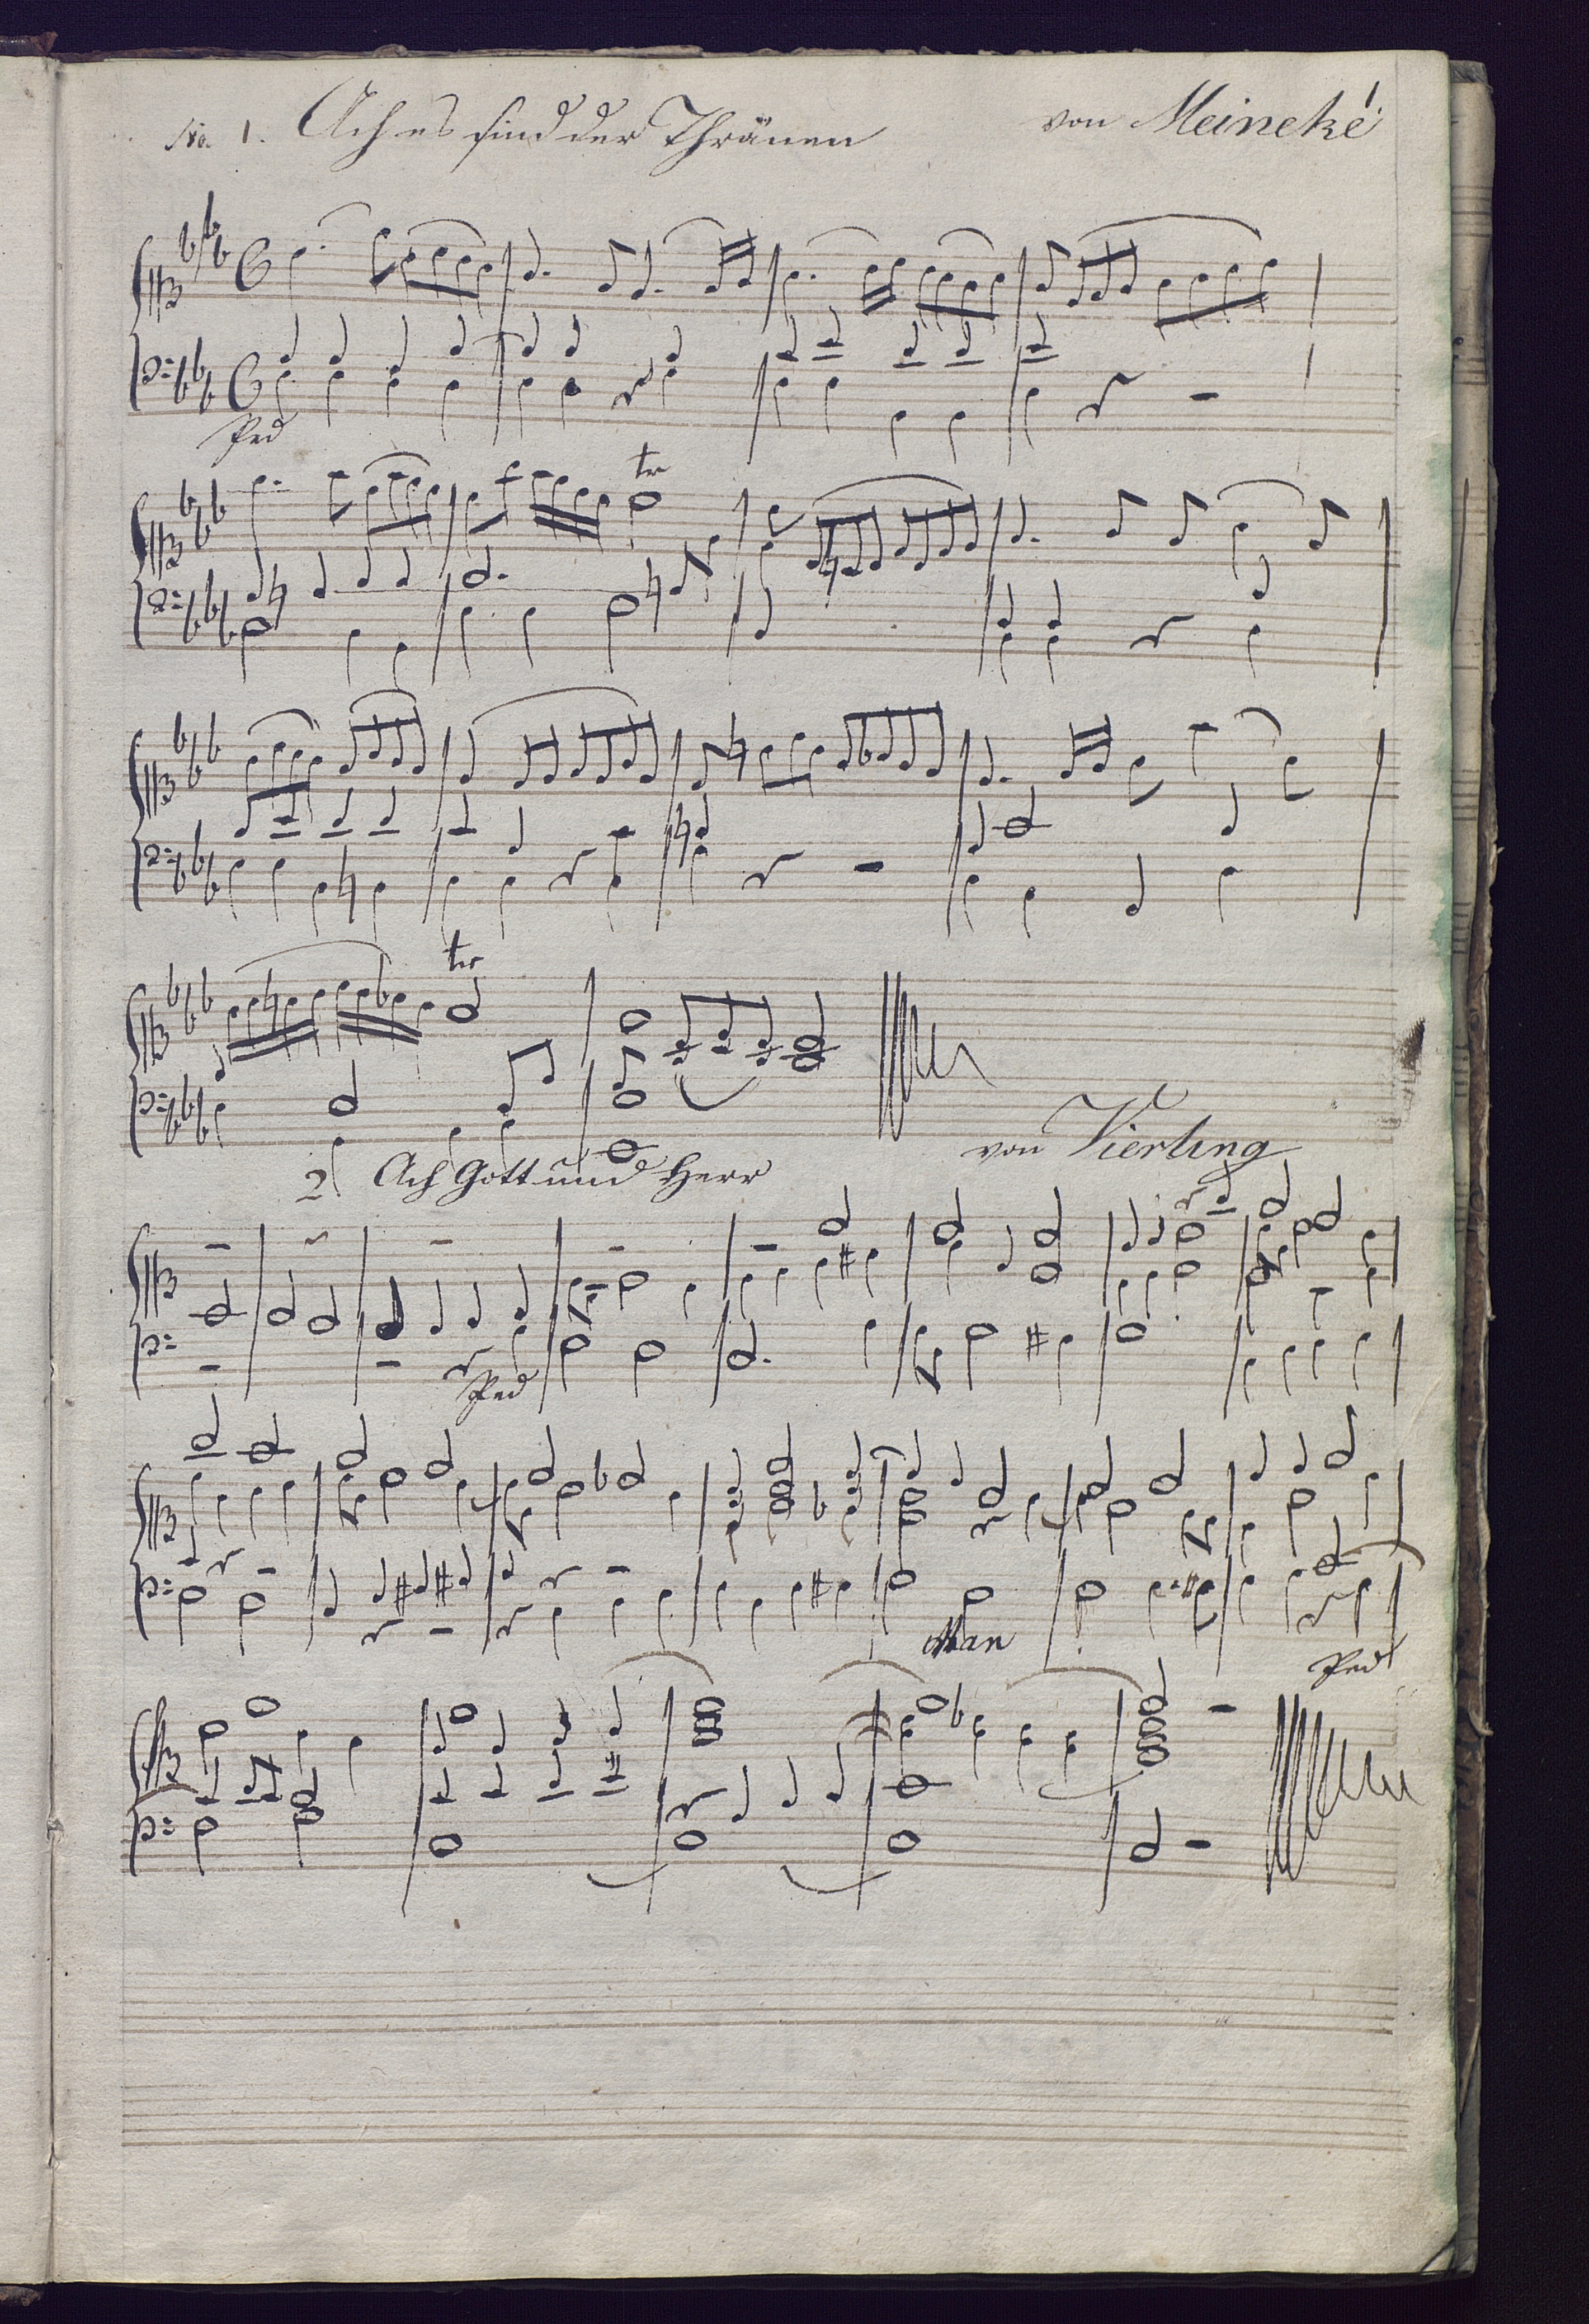 1
No. 1. Ach es sind der Thränen von Meineke
Ped
tr
tr
2 Ach Gott und Herr von Vierling
Ped
Man
Ped